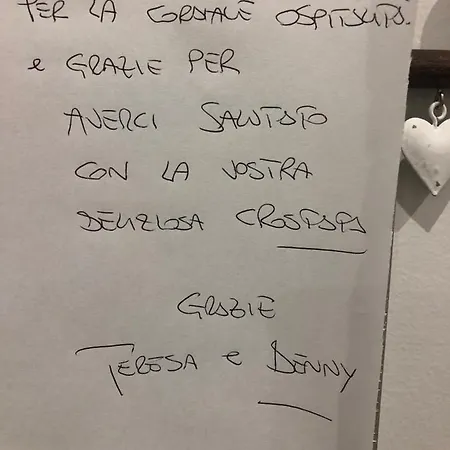 PER LA CORDIALE OSPITALITÀ.
e GRAZIE PER
AVERCI SALUTATO
CON LA VOSTRA
DELIZIOSA CROSTATA
GRAZIE
TERESA e DENNY